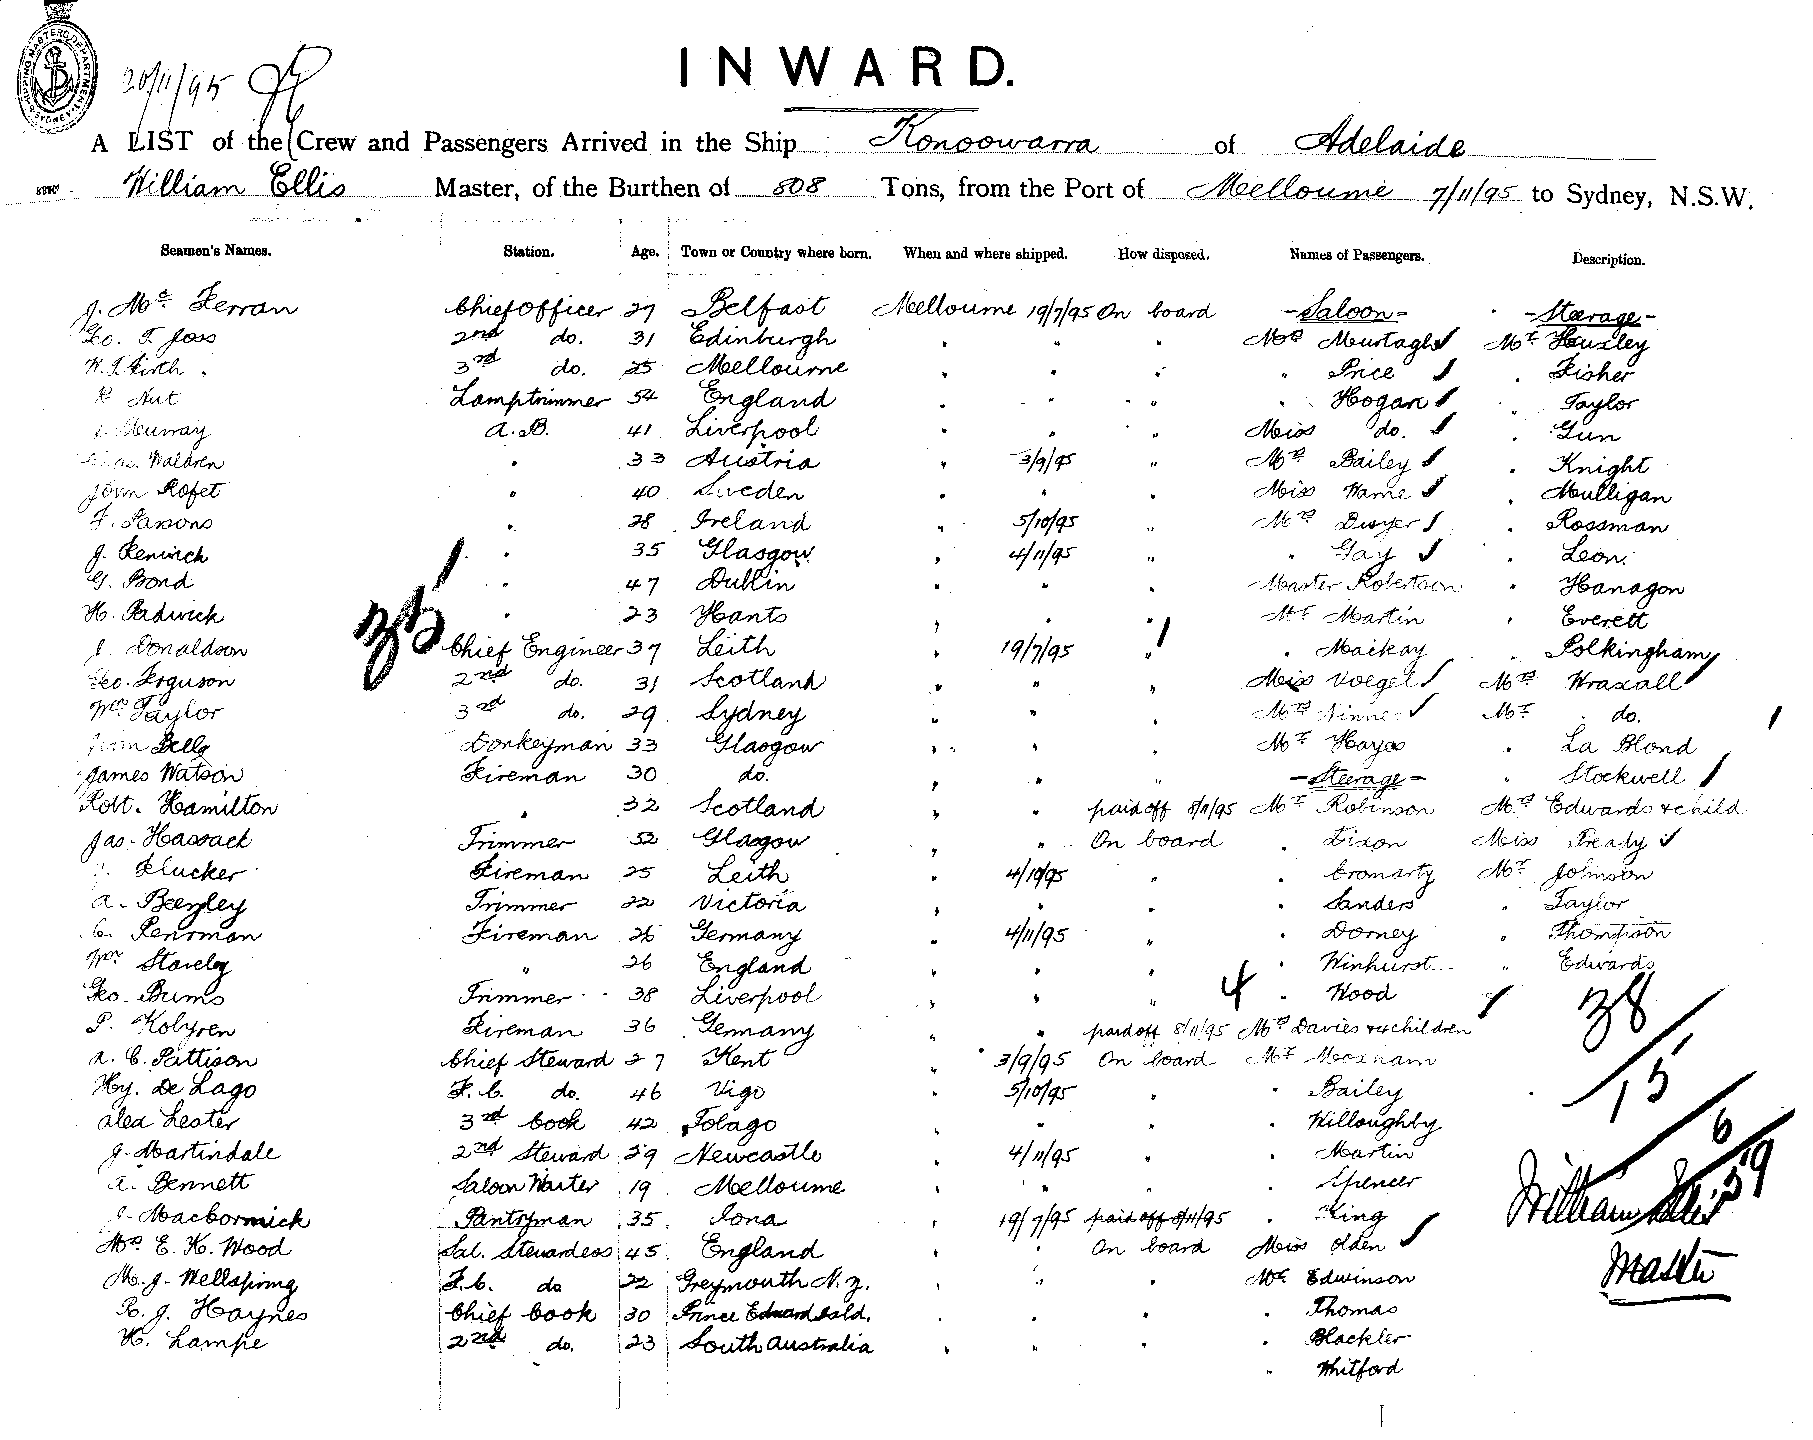 20/11/95
INWARD.
A LIST of the Crew and Passengers Arrived in the Ship Konoowarra of Adelaide
William Ellis Master, of the Burthen of 808 Tons, from the Port of Melbourne 7/11/95 to Sydney, N.S.W.
Seamen's Names. Station. Age. Town or Country where born. When and where shipped. How disposed. Names of Passengers. Description.
J. Mc Ferran Chief Officer 27 Belfast Melbourne 19/7/95 On board -Saloon- -Steerage-
Geo. T. Joss 2nd do. 31 Edinburgh " " " Mrs Murtagh Mr Huxley
W. J. Firth 3rd do. 25 Melbourne " " " " Price " Fisher
R Nut Lamptrimmer 54 England " " " " Hogan " Taylor
J. Murray A.B. 41 Liverpool " " " Miss do. " Gun
Waldren " 33 Austria " 3/9/95 " Mrs Bailey " Knight
John Rofet " 40 Sweden " " " Miss Warne " Mulligan
F. Parsons " 28 Ireland " 5/10/95 " Mrs Dwyer " Rossman
J. Renwick " 35 Glasgow " 4/11/95 " " Gay " Leon
G. Bond " 47 Dublin " " " Master Robertson " Hanagon
H. Padwick " 23 Hants " " " Mr Martin " Everett
J. Donaldson Chief Engineer 37 Leith " 19/7/95 " " Mackay " Polkingham
Geo. Ferguson 2nd do. 31 Scotland " " " Miss Voegel Mrs Wraxall
Wm Taylor 3rd do. 29 Sydney " " " Mrs Ninne Mr do.
Bell Donkeyman 33 Glasgow " " " Mr Hayes " La Blond
James Watson Fireman 30 do. " " " -Steerage- " Stockwell
Robt. Hamilton " 32 Scotland " " paid off 8/11/95 Mr Robinson Mrs Edwards + child
Jas. Hassack Trimmer 52 Glasgow " " On board " Dixon Miss Treaty
Klucker Fireman 25 Leith " 4/10/95 " " Cromarty Mr Johnson
A. Beezley Trimmer 22 Victoria " " " " Sanders " Taylor
C. Penrman Fireman 26 Germany " 4/11/95 " " Dorney " Thompson
Wm Staveley " 26 England " " " " Winhurst " Edwards
Geo. Burns Trimmer 38 Liverpool " " " 4 " Wood
P. Kolyren Fireman 36 Germany " " paid off 8/11/95 Mrs Davies + 4 children
A. C. Pattison Chief Steward 27 Kent " 3/9/95 On board Mr Moxham
Hy. De Lago F.C. do. 46 Vigo " 5/10/95 " " Bailey
Alex Lester 3rd Cook 42 Tobago " " " " Willoughby
J. Martindale 2nd Steward 29 Newcastle " 4/11/95 " " Martin
A. Bennett Saloon Waiter 19 Melbourne " " " " Spencer
J. MacCormick Pantryman 35 Iona " 19/7/95 paid off 8/11/95 " King
Mrs E. K. Wood Sal. Stewardess 45 England " " On board Miss Olden
M. J. Wellspring F.C. do 22 Greymouth N.Z. " " " Mr Edwinson
R. J. Haynes Chief Cook 30 Prince Edward Isld. " " " " Thomas
H. Lampe 2nd do. 23 South Australia " " " " Blackler
" Whitford
35
38
15
6
59
William Ellis
Master